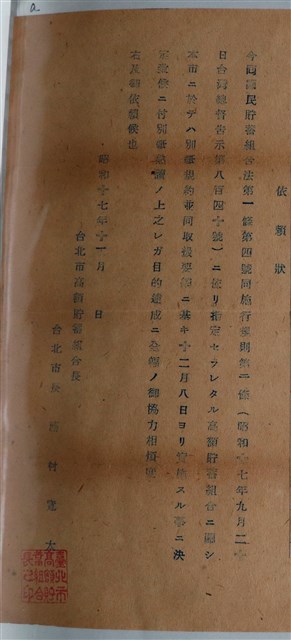 依賴狀
今回國民貯蓄組合法第一條第四號同施行規則第二條(昭和十七年九月二十
日台灣總督告示第八百四十號)ニ依リ指定セラレタル高額貯蓄組合ニ關シ
本市ニ於テハ別紙規約並同取扱要綱ニ基キ十二月八日ヨリ實施スル事ニ決
定候ニ付別紙ノ上之レガ目的達成ニ全幅ノ御協力相煩度
右及御依賴候也
昭和十七年十一月 日
台北市高額貯蓄組合長
台北市長 村